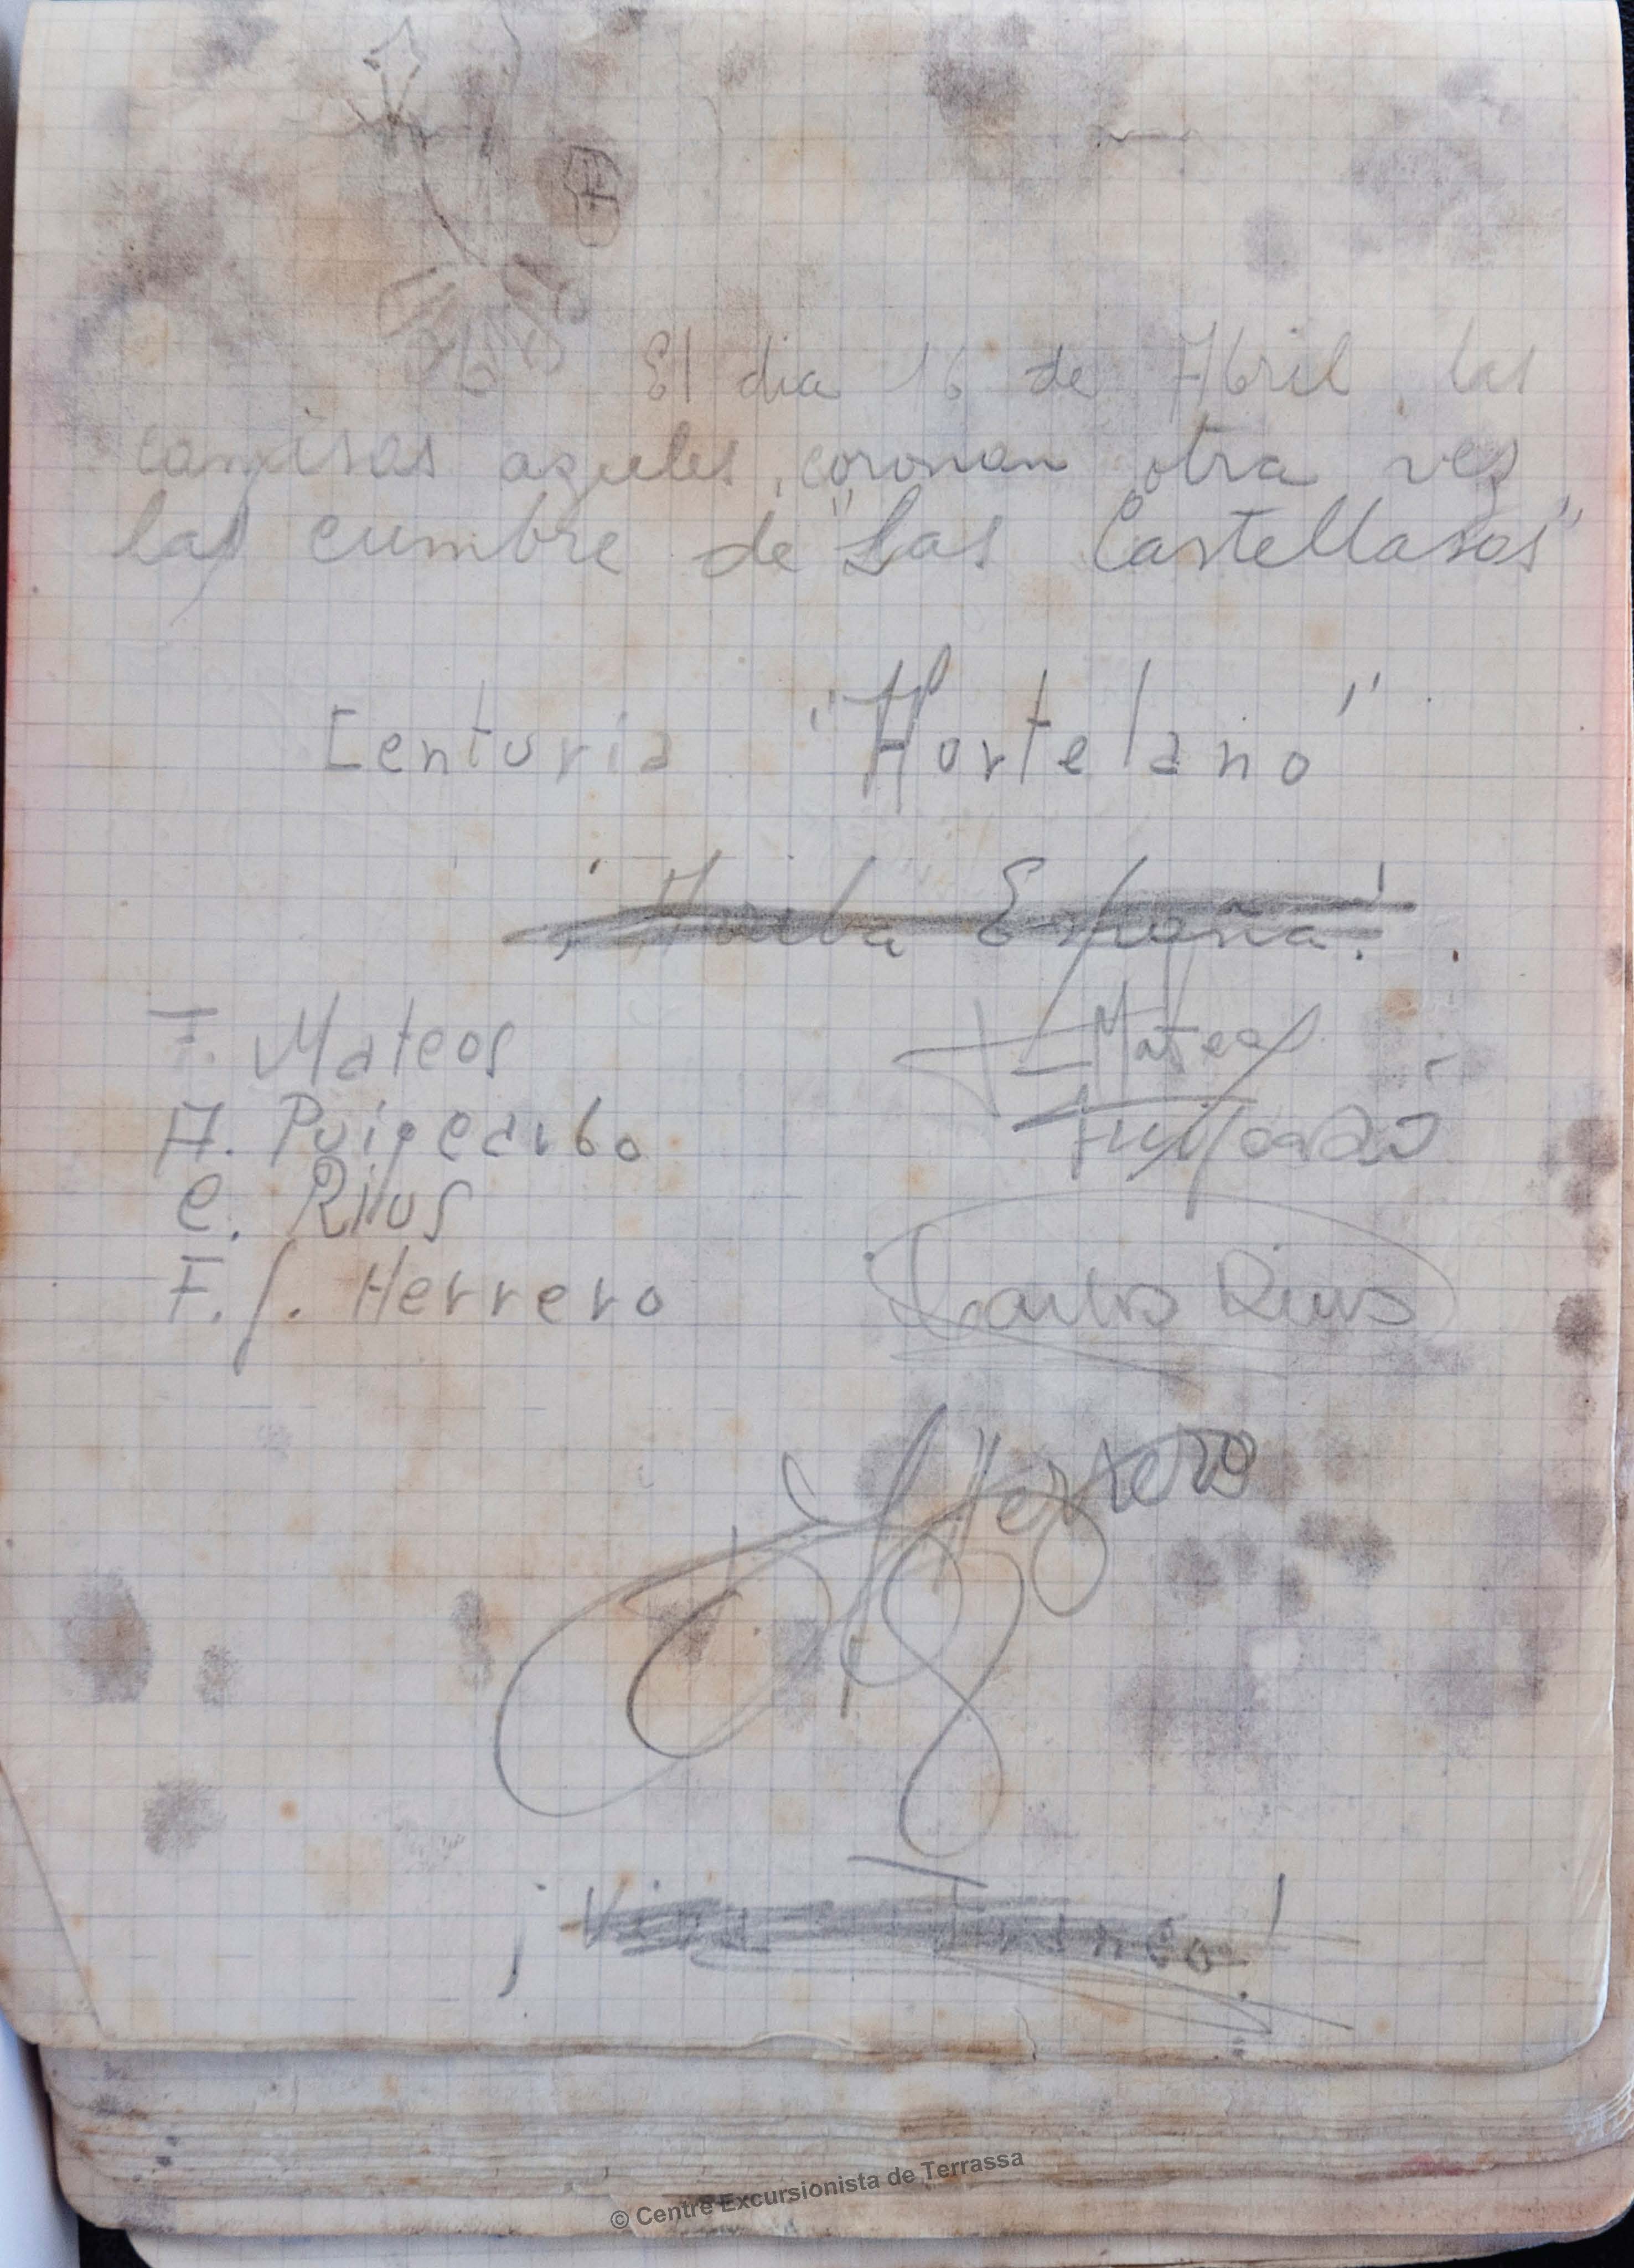 El dia 16 de Abril, las
camisas azules, coronan otra vez
las cumbre de "Las Castellasos"
Centuria "Hortelano"
¡Arriba España!
F. Mateos
F. Mateos
A. Puigcarbo
Puigcarbó
C. Rius
Carlos Rius
F. S. Herrero
Herrero
¡Viva Franco!
© Centre Excursionista de Terrassa